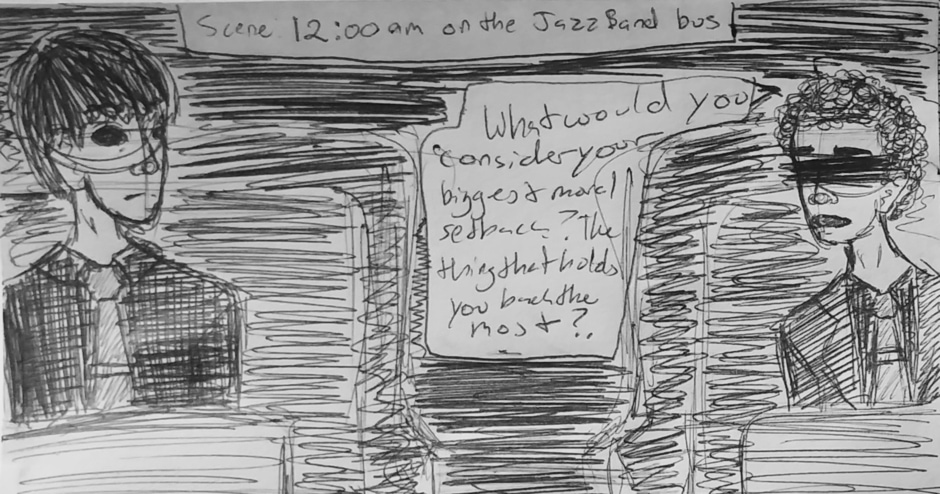 Scene: 12:00am on the Jazz Band bus
What would you
consider your
biggest moral
setback? The
thing that holds
you back the
most?